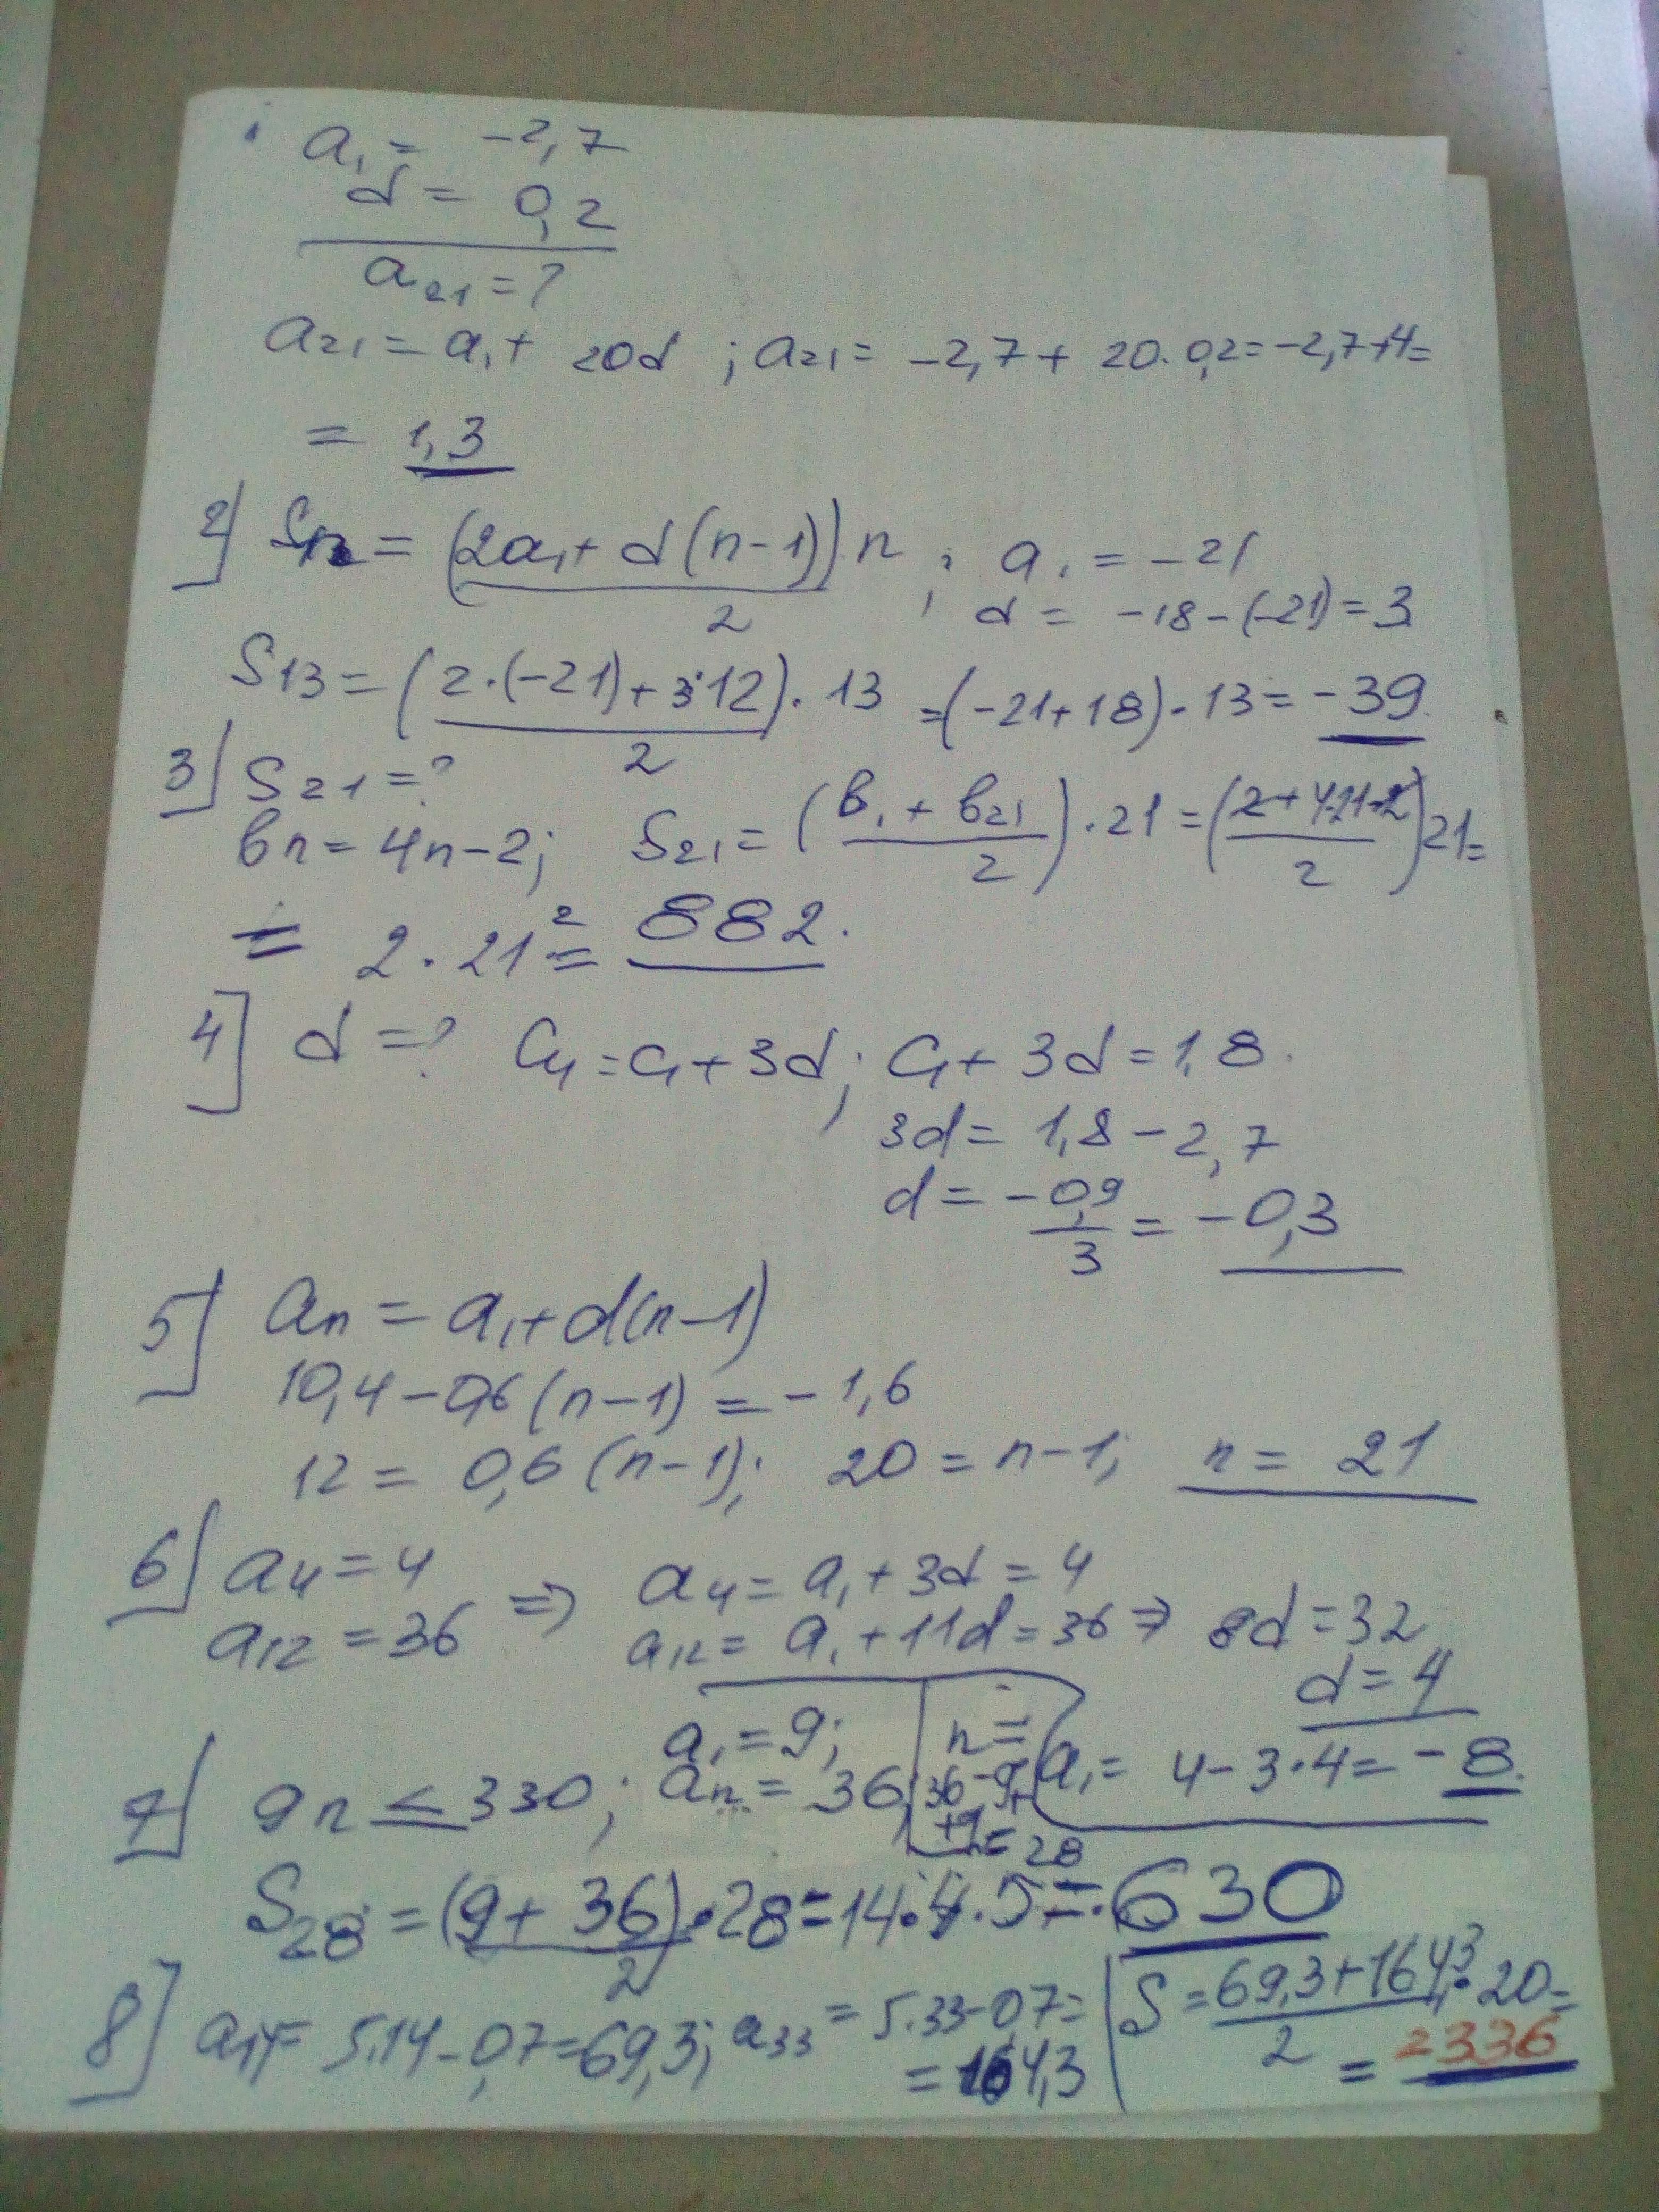 a₁ = -2,7
d = 0,2
a₂₁ = ?
a₂₁ = a₁ + 20d ; a₂₁ = -2,7 + 20·0,2 = -2,7+4 =
= 1,3
2] Sn = (2a₁ + d(n-1))/2 · n ; a₁ = -21
d = -18-(-21) = 3
S₁₃ = (2·(-21)+3·12)/2 · 13 = (-21+18)·13 = -39
3] S₂₁ = ?
bn = 4n-2; S₂₁ = (b₁ + b₂₁)/2 · 21 = (2+4·21-2)/2 21 =
= 2·21² = 882.
4] d = ? C₄ = C₁ + 3d; C₁ + 3d = 1,8
3d = 1,8 - 2,7
d = -0,9/3 = -0,3
5] an = a₁ + d(n-1)
10,4 - 0,6(n-1) = -1,6
12 = 0,6(n-1); 20 = n-1; n = 21
6] a₄ = 4 ⇒ a₄ = a₁ + 3d = 4
a₁₂ = 36 a₁₂ = a₁ + 11d = 36 ⇒ 8d = 32
d = 4
a₁ = 4 - 3·4 = -8.
7] 9n ≤ 330; a₁ = 9; an = 36; n = 36-9+
+1 = 28
S₂₈ = (9+36)/2 · 28 = 14·4.5 = 630
8] a₁₄ = 5.14-0,7 = 69,3; a₃₃ = 5.33-0,7 =
= 164,3
S = (69,3+164,3)/2 · 20 =
= 2336